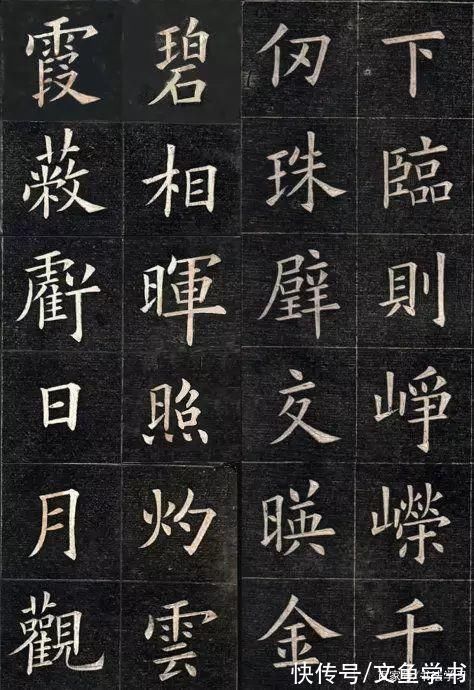 下臨則崢嶸千
仞珠璧交暎金
碧相暉照灼雲
霞蔽虧日月觀
快传号/文鱼学书